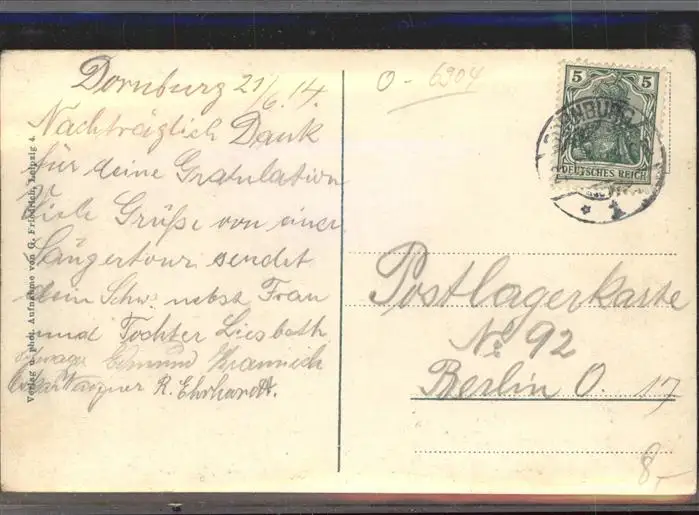 Dornburg 21/6.14.
Nachträglich Dank
für deine Gratulation
Viele Grüße von einer
Sängertour sendet
dein Schw. nebst Frau
und Tochter Liesbeth
Edmund
Wagner R. Ehrhardt.
Verlag u. phot. Aufnahme von G. Friedrich, Leipzig 4.
O - 6904
5 5
DEUTSCHES REICH
NBURG
* 1
Postlagerkarte
No 92
Berlin O. 17
8,-